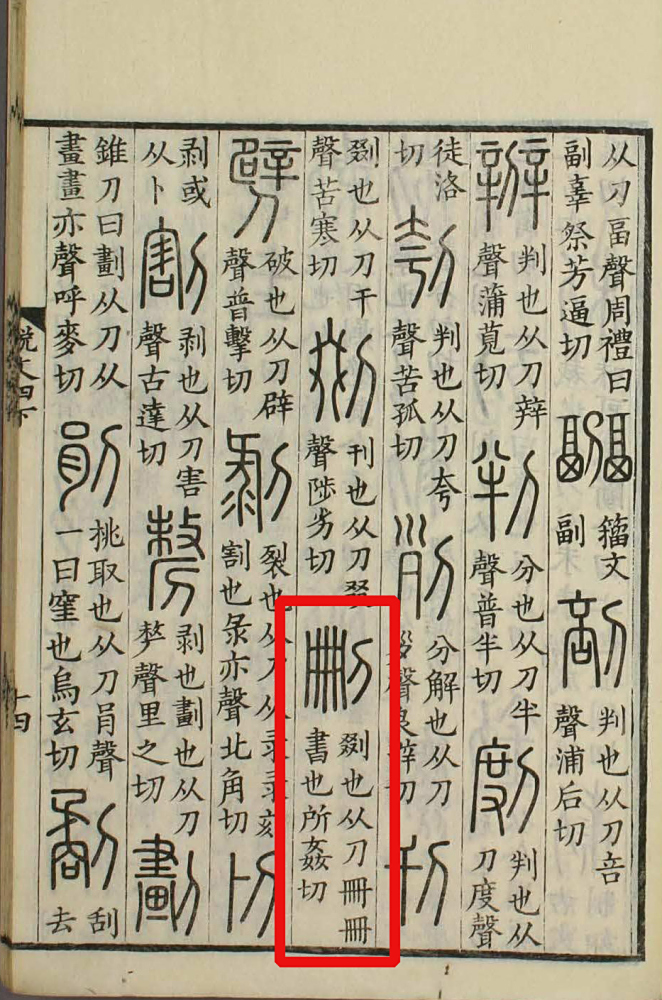 从刀畐聲周禮曰
副辜祭芳逼切
𠠦
籀文
副
剖
判也从刀咅
聲浦后切
辨
判也从刀辡
聲蒲莧切
判
分也从刀半
聲普半切
剫
判也从
刀度聲
徒洛
切
刳
判也从刀夸
聲苦孤切
列
分解也从刀
𡿪聲良辥切
刊
剟也从刀干
聲苦寒切
剟
刊也从刀叕
聲陟劣切
刪
剟也从刀冊冊
書也所姦切
劈
破也从刀辟
聲普擊切
剝
裂也从刀从彔彔刻
割也彔亦聲北角切
剥或
从卜
割
剥也从刀害
聲古達切
剥也劃也从刀
𠩺聲里之切
劃
錐刀曰劃从刀从
畫畫亦聲呼麥切
剈
挑取也从刀肙聲
一曰窒也烏玄切
刮
去
說文四下
十四